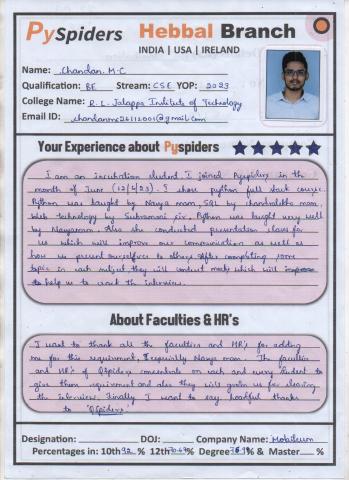 PySpiders Hebbal Branch
INDIA | USA | IRELAND
Name: Chandan. M.C
Qualification: BE Stream: CSE YOP: 2023
College Name: R. L. Jalappa Institute of Technology
Email ID: chandanmc26112001@gmail.com
Your Experience about Pyspiders
I am an incubation student. I joined Pyspiders in the
month of June (12/6/23). I chose python full stack course.
Python was taught by Navya mam, SQL by chandralekha mam,
Web technology by Subramani sir, Python was taught very well
by Navyamam. Also she conducted presentation class for
us which will improve our communication as well as
how we present ourselfves to others. After completing some
topic in each subject they will conduct mock which will
to help us to crack the interview.
About Faculties & HR's
I want to thank all the faculties and HR's for adding
me for this requirement, Especially Navya mam. The faculties
and HR's of QSpiders concentrate on each and every student to
give them requirement and also they will guide us for clearing
the interview. Finally I want to say heartful thanks
to "QSpiders".
Designation: DOJ: Company Name: Mobileum
Percentages in: 10th 92 % 12th % Degree % & Master %